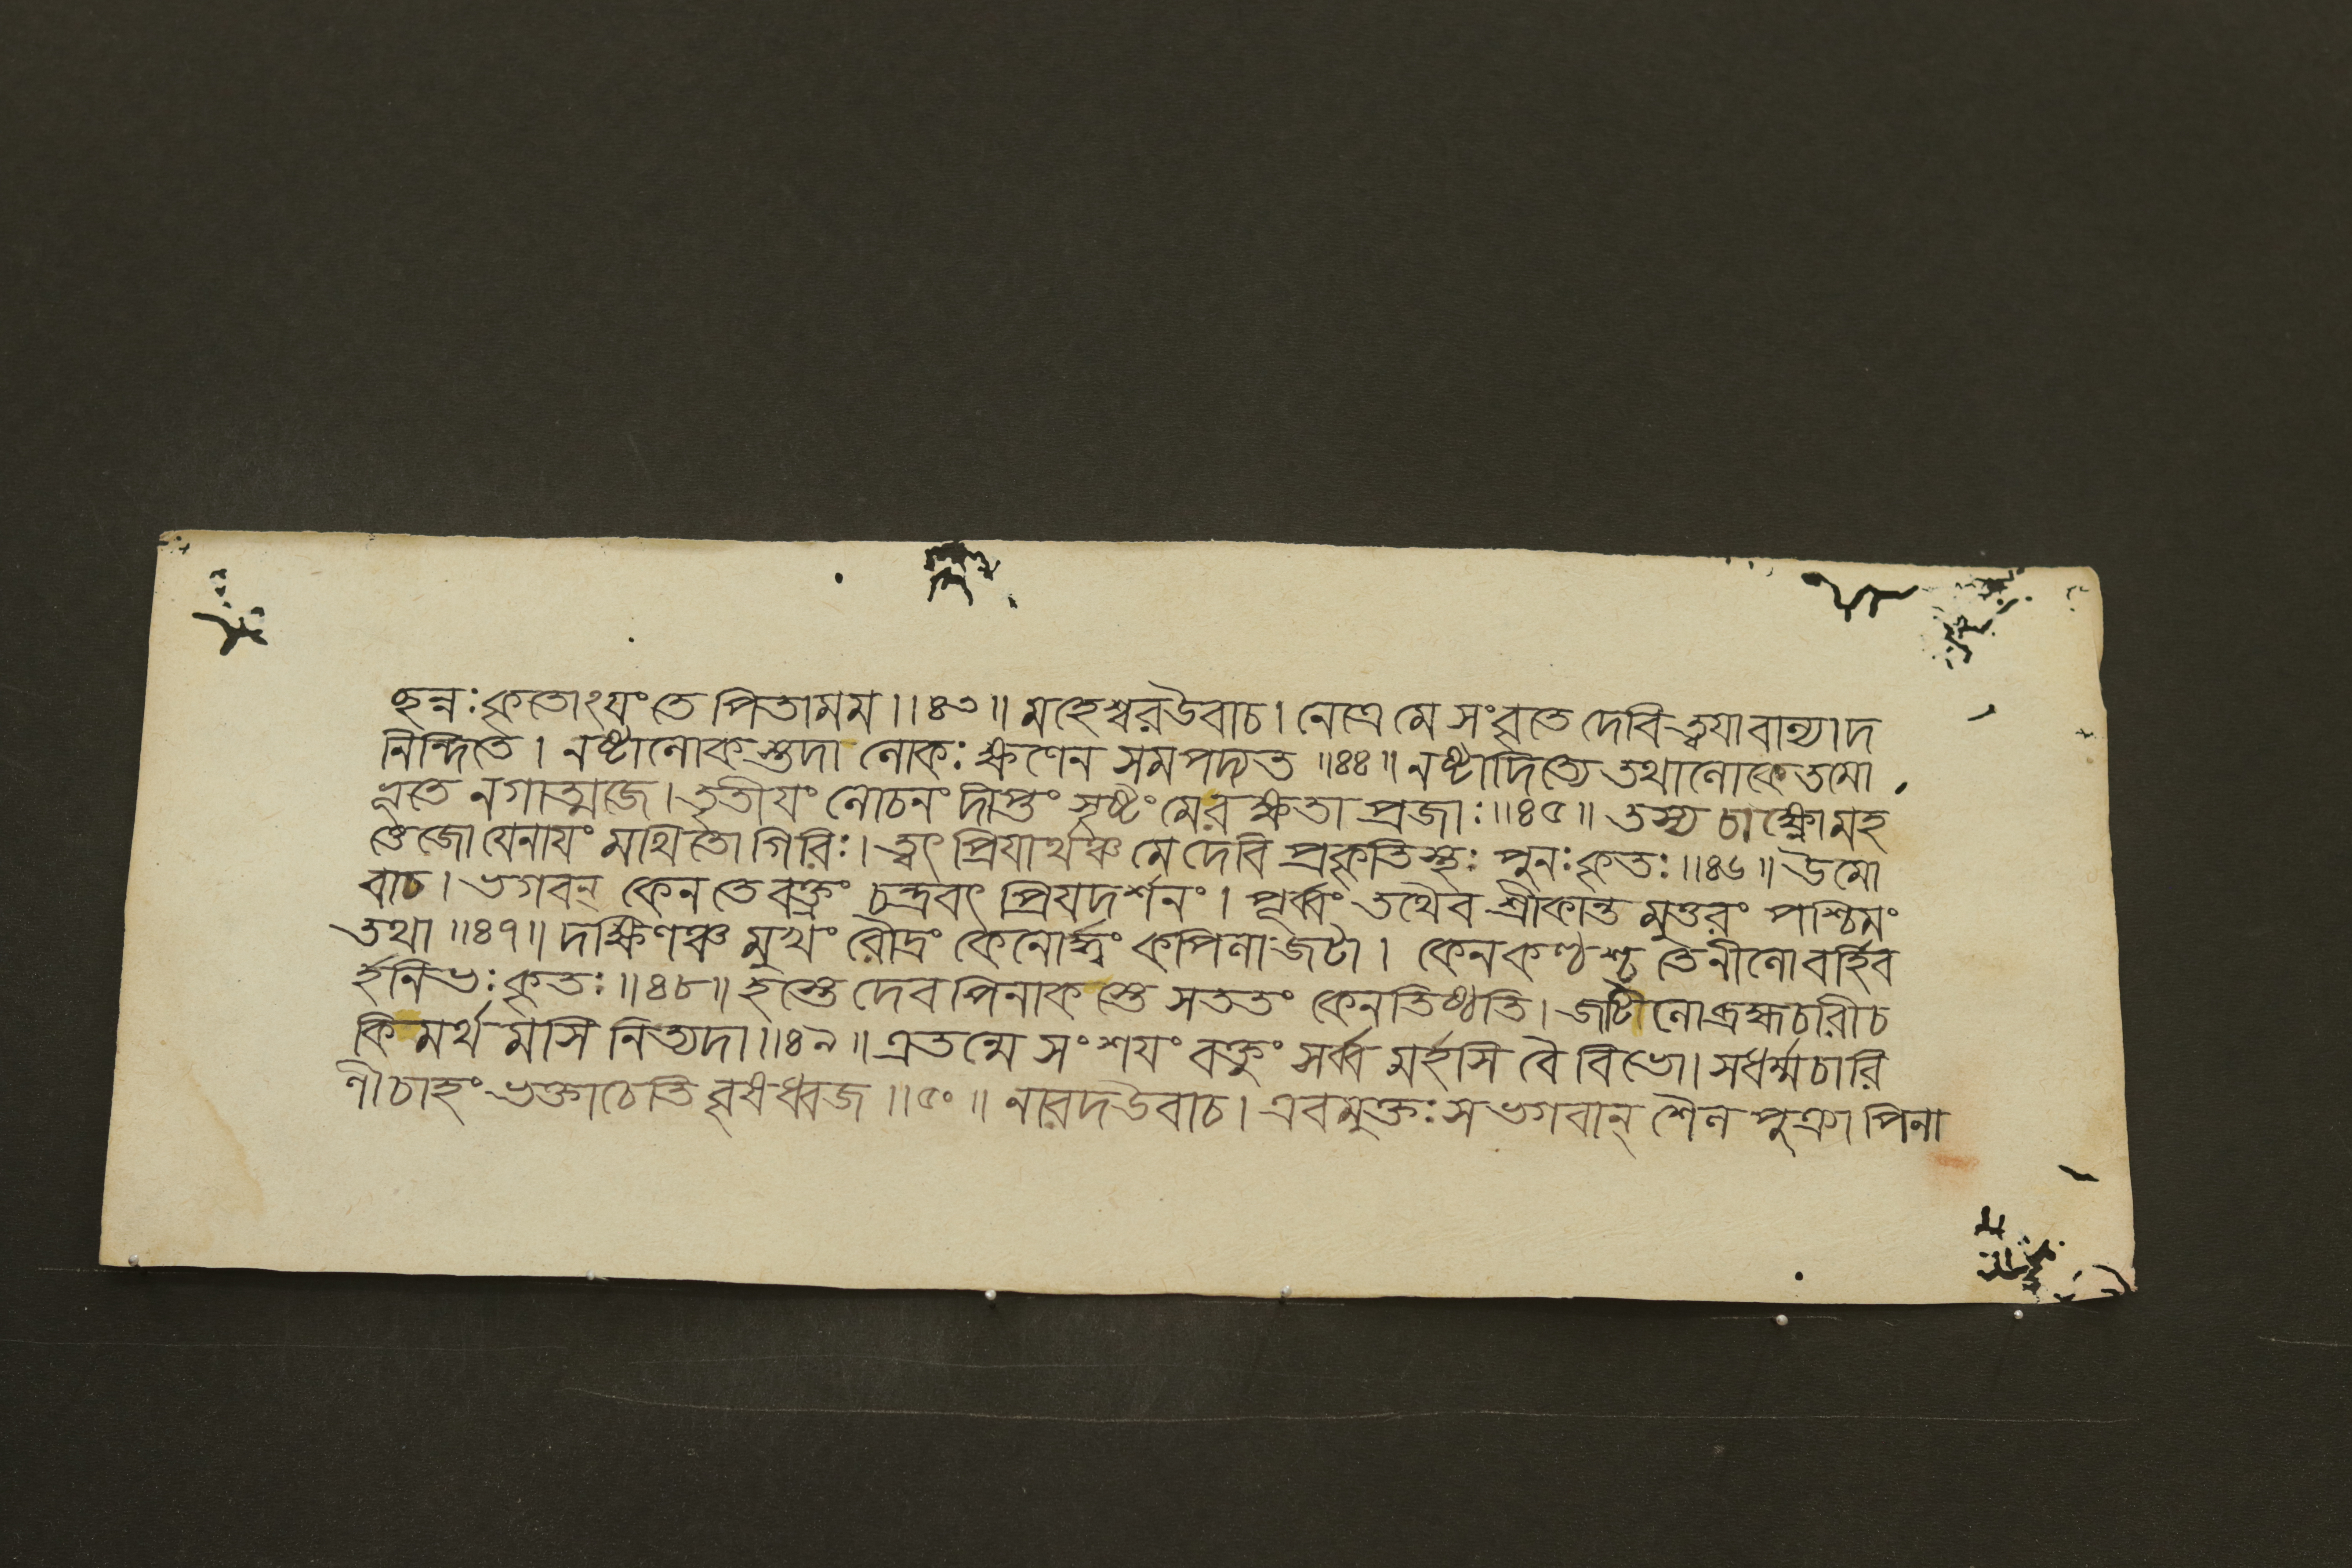 ছন্নঃকৃতোঽযংতে পিতামম।।৪৩॥ মহেশ্বরউবাচ। নেত্রে মে সংবৃতে দেবি ত্বযা বাল্যাদ
নিন্দিতে। নষ্টালোকস্তুদা লোকঃ ক্ষণেন সমপদ্যত॥৪৪॥ নষ্টাদিত্যে তথালোকেতমো
ভূতে নগাত্মজে। তৃতীযং লোচনং দীপ্তং সৃষ্টংমেরক্ষতা প্রজাঃ॥৪৫॥ তস্য চাক্ষ্ণোমহ
ত্তেজো যেনাযং মথিতো গিরিঃ। ত্বৎ প্রিযার্থঞ্চ মে দেবি প্রকৃতিস্থঃ পুনঃকৃতঃ॥৪৬॥ উমো
বাচ। ভগবন্ কেন তে বক্ত্রং চন্দ্রবৎ প্রিযদর্শনং। পূর্ব্বং তথৈব শ্রীকান্ত মুত্তরং পশ্চিমং
তথা॥৪৭॥ দক্ষিণঞ্চ মুখং রৌদ্রং কেনোর্দ্ধং কপিলাজটা। কেনকণ্ঠশ্চ তেনীলোবর্হিব
র্হনিভঃকৃতঃ॥৪৮॥ হস্তে দেব পিনাকস্তে সততং কেনতিষ্ঠতি। জটিলোব্রহ্মচারীচ
কিমর্থ মসি নিত্যদা॥৪৯॥ এতন্মে সংশযং বক্তুং সর্ব্ব মর্হসি বৈ বিভো। সধর্ম্মচারি
ণীচাহং ভক্তাচেতি বৃষধ্বজ॥৫০॥ নারদউবাচ। এবমুক্তঃ স ভগবান্ শৈল পুত্র্যা পিনা